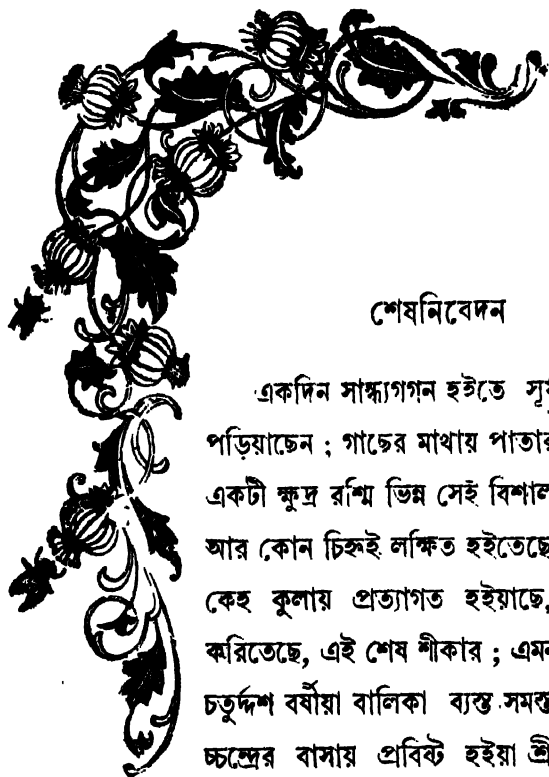 শেষনিবেদন
একদিন সান্ধ্যগগন হইতে
পড়িয়াছেন ; গাছের মাথায় পাতার
একটী ক্ষুদ্র রশ্মি ভিন্ন সেই বিশাল
আর কোন চিহ্নই লক্ষিত হইতেছে
কেহ কুলায় প্রত্যাগত হইয়াছে,
করিতেছে, এই শেষ শীকার ; এমন
চতুর্দ্দশ বর্ষীয়া বালিকা ব্যস্ত সমস্ত
চ্চন্দ্রের বাসায় প্রবিষ্ট হইয়া শ্রী